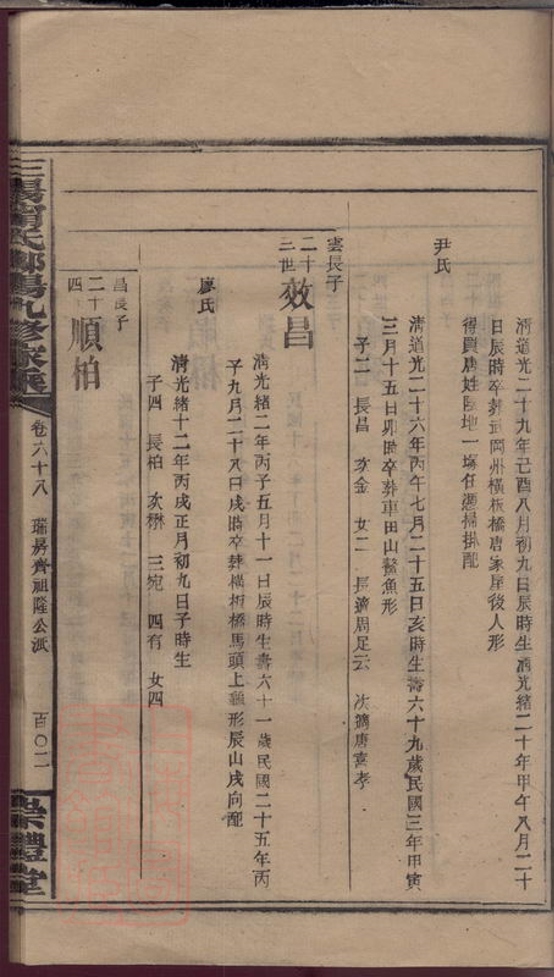 清道光二十九年己酉八月初九日辰時生清光緒二十年甲午八月二十
日辰時卒葬武岡州橫板橋唐家屋後人形
得買唐姓陰地一塜任憑掃掛配
尹氏
清道光二十六年丙午七月二十五日亥時生壽六十九歲民國三年甲寅
三月十五日卯時卒葬車田山鰲魚形
子二 長昌 次金 女二 長適周足云 次適唐喜孝
雲長子
二十三世
效昌
清光緒二年丙子五月十一日辰時生壽六十一歲民國二十五年丙
子九月二十八日戌時卒葬橫板橋馬頭上雞形辰山戌向配
廖氏
清光緒十二年丙戌正月初九日子時生
子四 長柏 次楙 三宛 四有 女四
昌長子
二十四
順柏
九修
卷六十八
瑞房齊祖隆公派
百〇二
崇禮堂